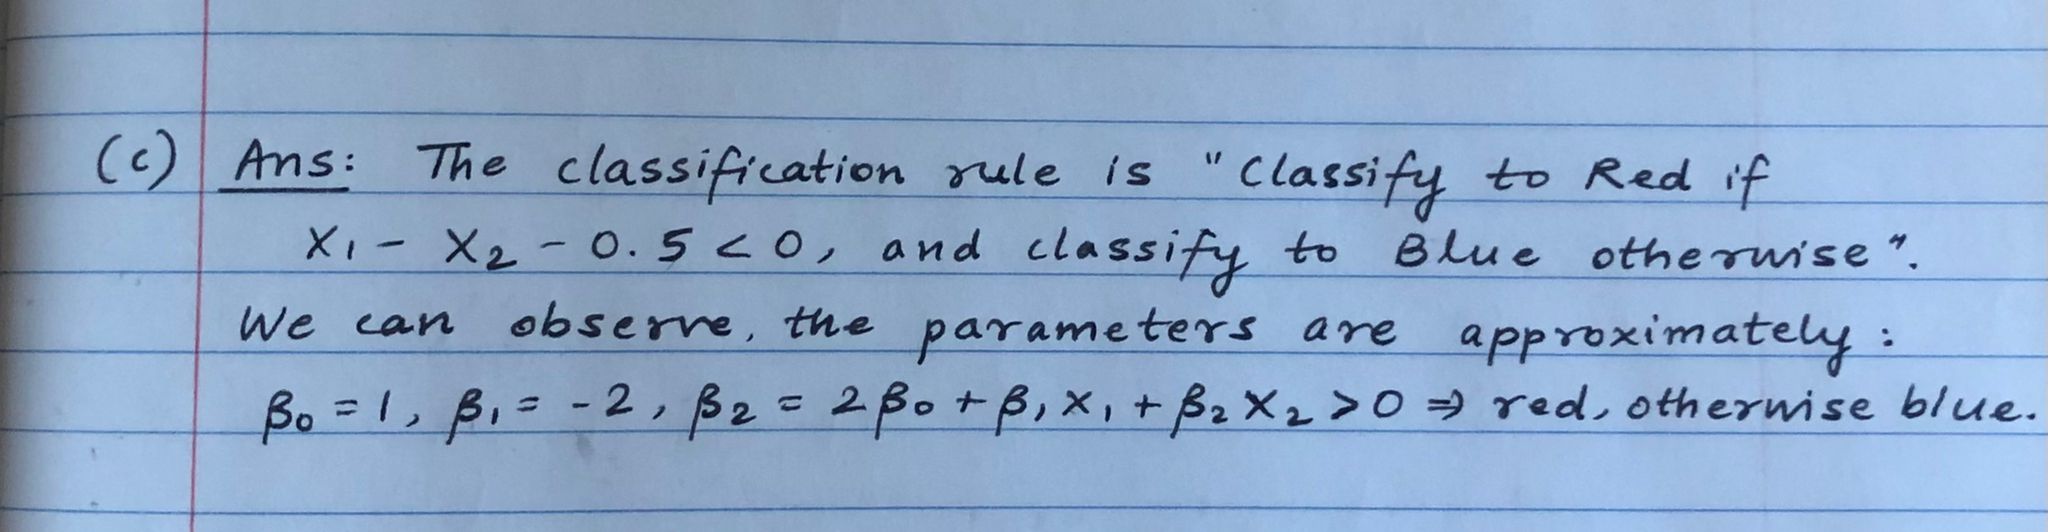 (c) Ans: The classification rule is "Classify to Red if
X₁ - X₂ - 0.5 < 0, and classify to Blue otherwise".
We can observe, the parameters are approximately:
β₀ = 1, β₁ = -2, β₂ = 2β₀ + β₁X₁ + β₂X₂ > 0 ⇒ red, otherwise blue.